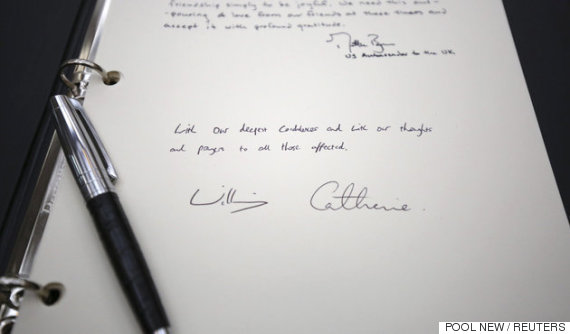 friendship simply to be joyful. We need this out-
pouring of love from our friends at these times and
accept it with profound gratitude.
US Ambassador to the UK
With our deepest Condolences and with our thoughts
and prayers to all those affected.
William
Catherine.
POOL NEW / REUTERS